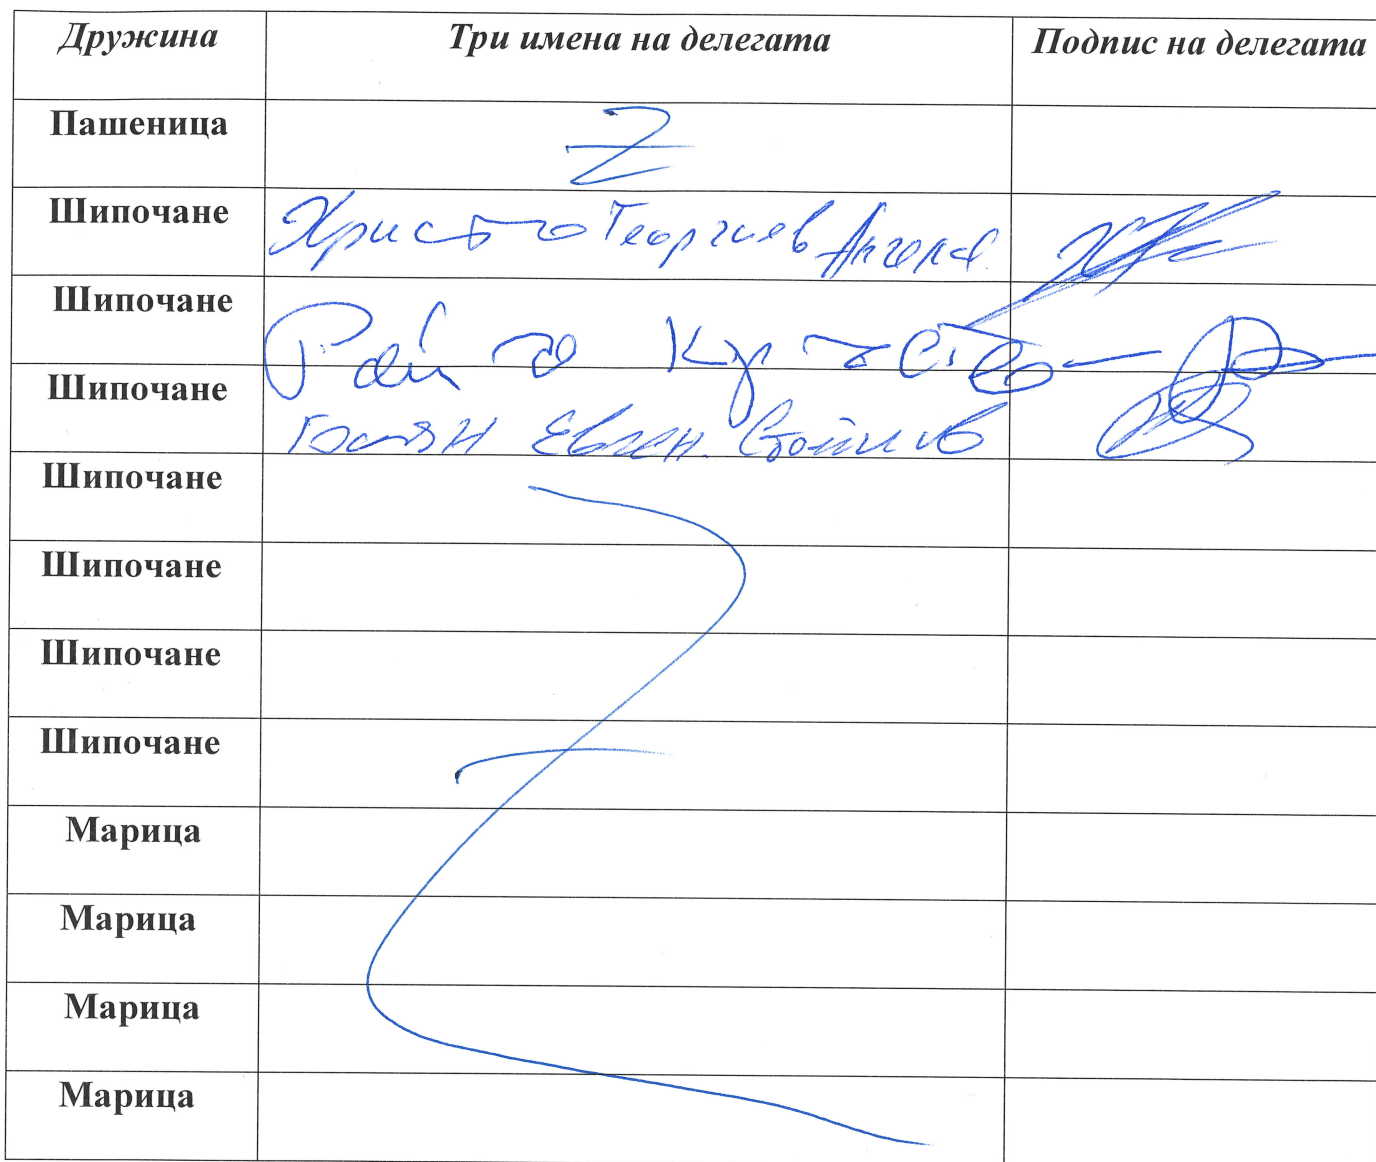 Дружина Три имена на делегата Подпис на делегата
Пашеница Z
Шипочане Христо Георгиев Ангелов
Шипочане
Шипочане Стоилов
Шипочане
Шипочане
Шипочане
Шипочане
Марица
Марица
Марица
Марица